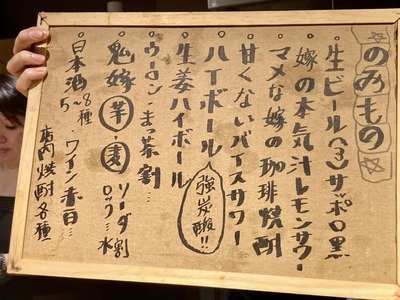 ☆のみもの☆
・生ビール(う)サッポロ黒
・嫁の本気汁レモンサワー
・マメな嫁の珈琲焼酎
・甘くないバイスサワー
・ハイボール 強炭酸!!
・生姜ハイボール
・ウーロン・まっ茶割…
・鬼嫁 芋・麦 ソーダ割 ロック…水
・日本酒5~8種・ワイン赤白…
店内焼酎各種